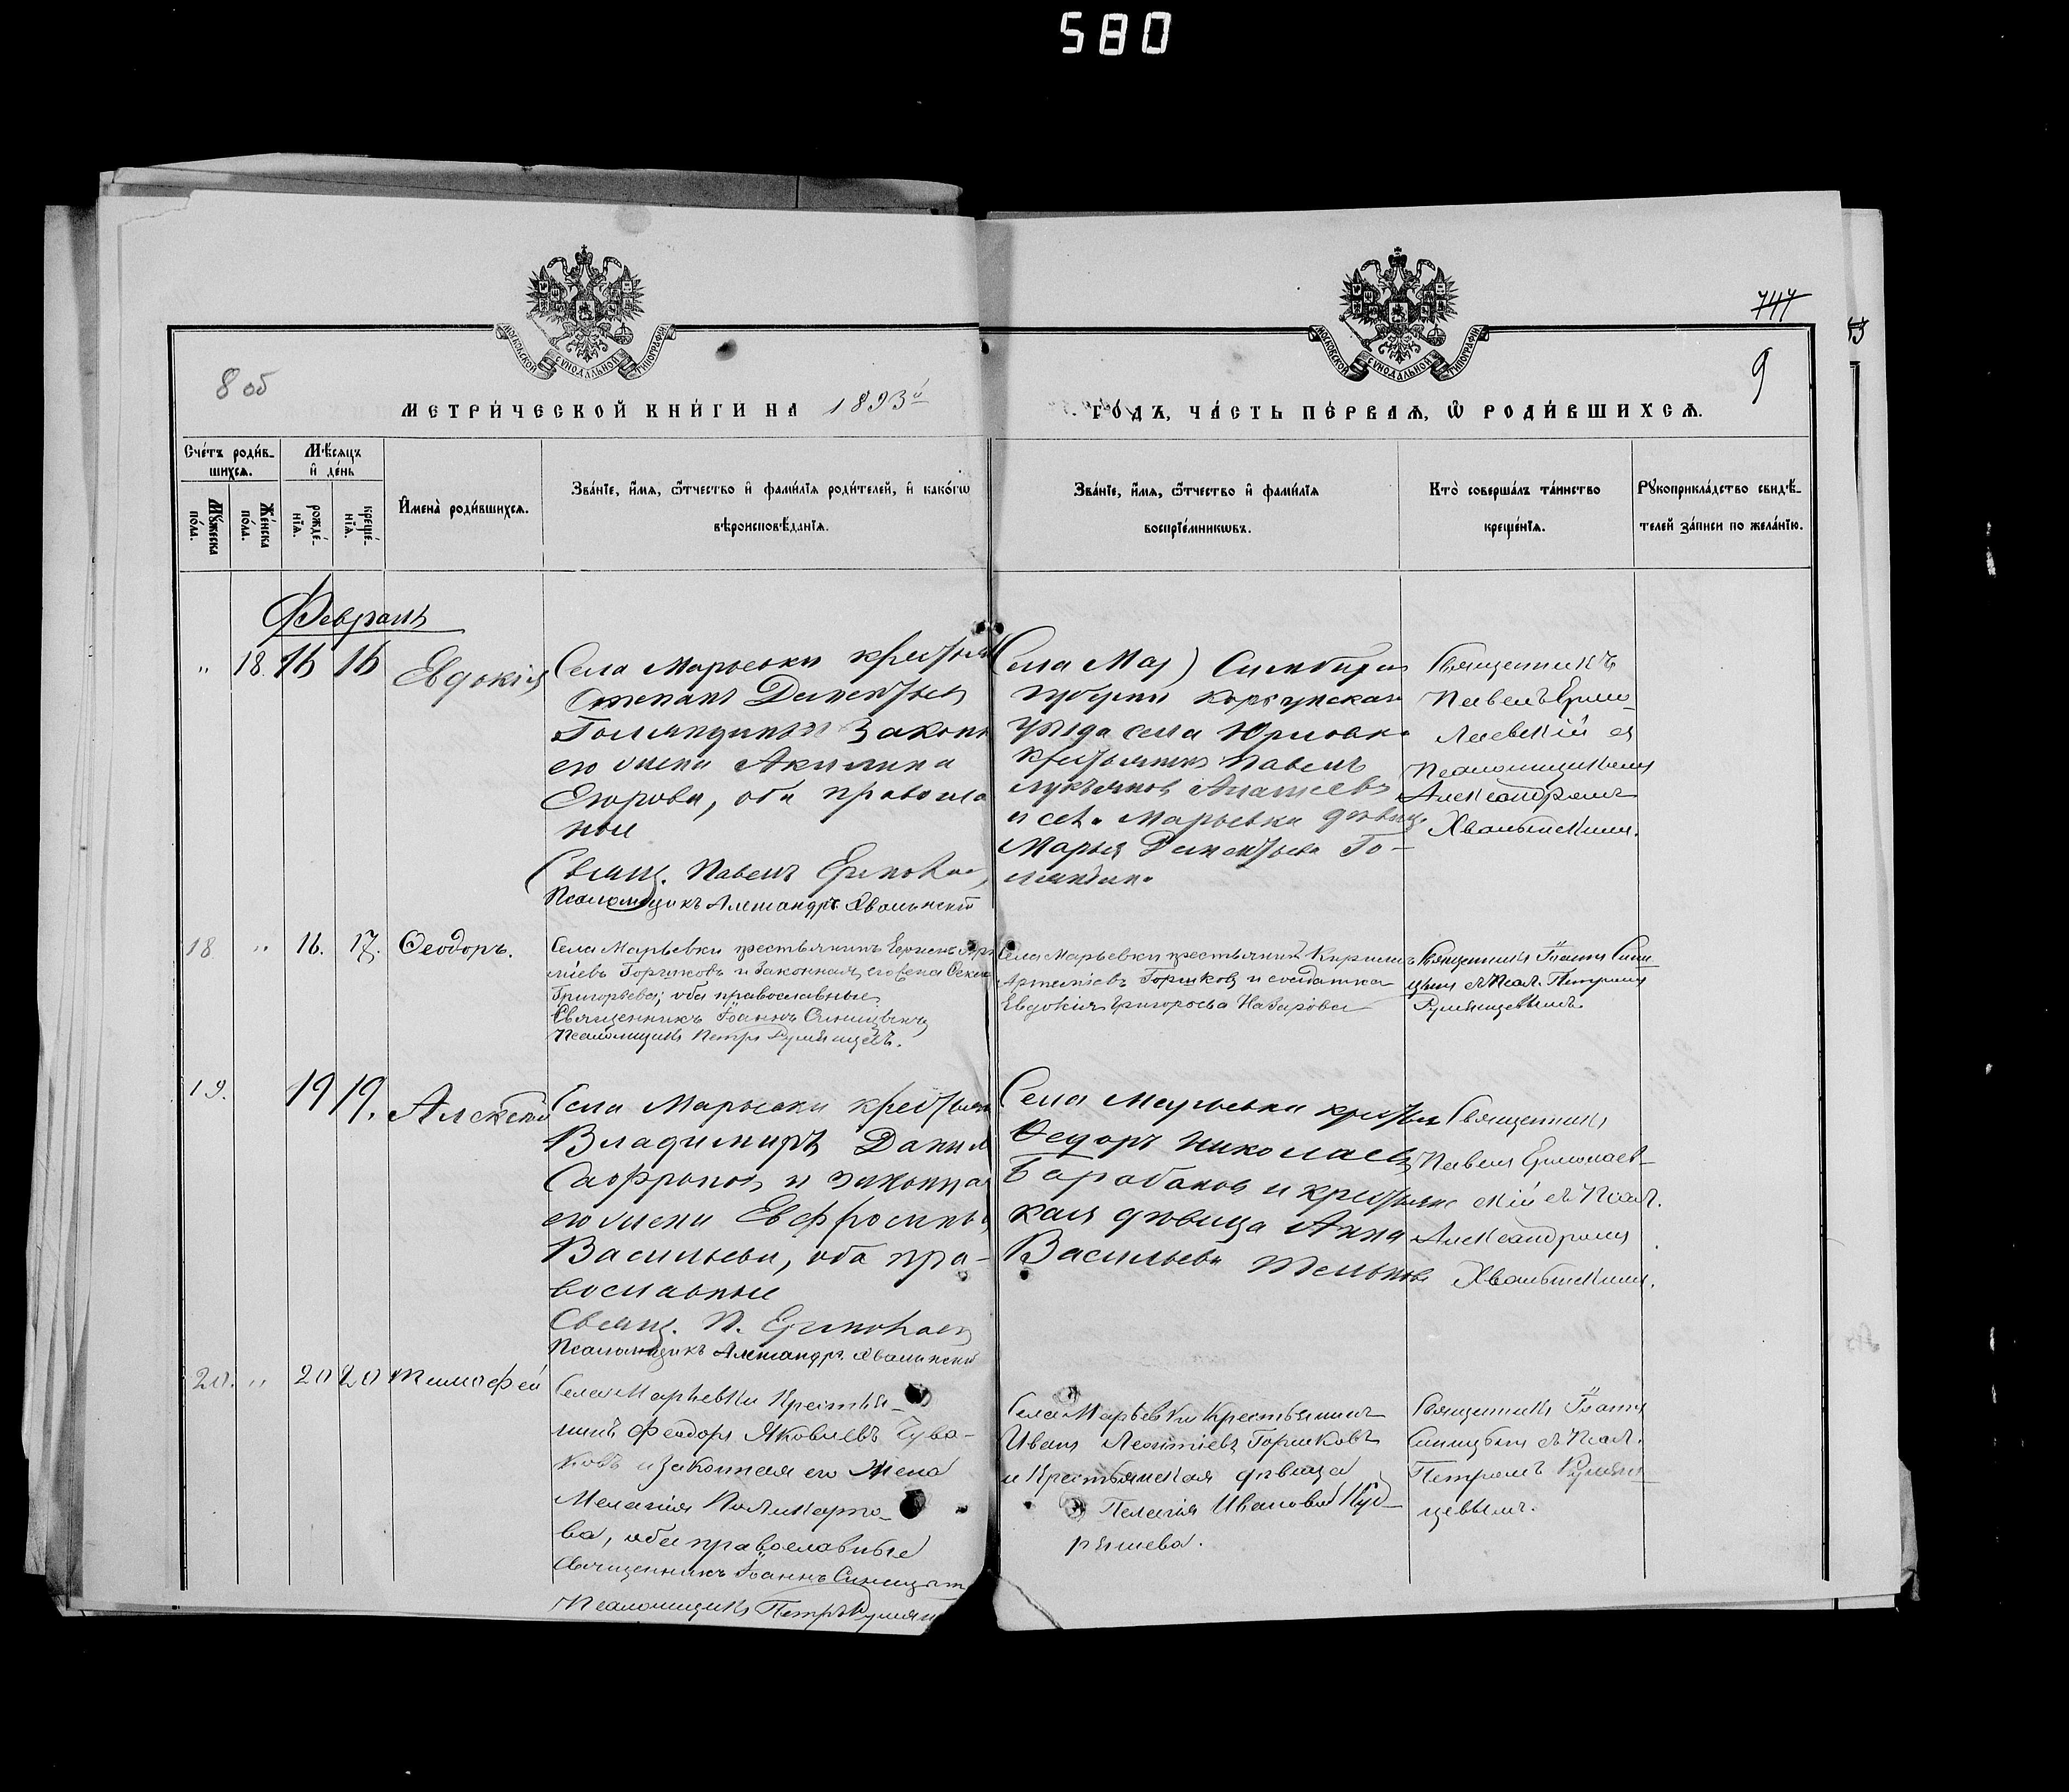 580
МОСКОВСКОЙ СУНОДАЛЬНОЙ ТИПОГРАФІИ
МОСКОВСКОЙ СУНОДАЛЬНОЙ ТИПОГРАФІИ
747
8 об
9
МЕТРИ́ЧЕСКОЙ КНИ́ГИ НА 1893й
ГО́ДЪ, ЧА́СТЬ ПЕ́РВАѦ, Ѿ РОДИ́ВШИХСѦ.
Сче́тъ роди́в-
шихсѧ.
Мꙋ́жеска
по́ла.
Же́нска
по́ла.
Мѣ́сѧцъ
и҆ де́нь
рожде́-
нїѧ.
креще́-
нїѧ.
И҆мена̀ роди́вшихсѧ.
Зва́нїе, и҆́мѧ, ѻ҆́тчество и҆ фами́лїѧ роди́телей, и҆ како́гѡ
вѣроисповѣ́данїѧ.
Зва́нїе, и҆́мѧ, ѻ҆́тчество и҆ фами́лїѧ
воспрїе́мникѡвъ.
Кто̀ соверша́лъ та́инство
креще́нїѧ.
Рꙋкоприкла́дство свидѣ́-
телей за́писи по жела́нїю.
Февраль
" 18. 16 16 Евдокія
Села Марьевки крестьян
Степанъ Дементьев
законн
его жена Акилина
Егорова, оба правосла
ные
Свящ. Павелъ Ермола
Псаломщикъ Александръ Хвалынскій
Села Мар) Симбирс
губерни Корсунскаго
уѣзда села Юрловки
крестьянинъ Павелъ
Лукьяновъ
и сел. Марьевки дѣвица
Марья Дементьева Го-
Священникъ
Павелъ Ермо-
лаевскій съ
Псаломщикомъ
Александромъ
Хвалынскимъ.
18 " 16. 17. Ѳеодоръ.
Села Марьевки крестьянинъ
Горшковъ и законная его жена
Григорьева; оба православные.
Священникъ Іоаннъ Синицынъ
Псаломщикъ Петръ Румянцевъ.
Села Марьевки крестьянинъ Кириллъ
Артеміевъ Горшковъ и солдатка
Евдокія Григорьева Назарова
Священникъ Іоаннъ Сини-
цынъ съ Псал. Петромъ
Румянцевымъ.
19. 19 19. Алексѣй
Села Марьевки крестьян
Владимиръ Данил
Сафроновъ и законная
его жена Евфросинья
Васильева, оба пра-
вославные
Свящ. П. Ермолаев
Псаломщикъ Александръ Хвалынскій
Села Марьевки крестьян
Ѳедоръ Николаевъ
Барабановъ и крестьянс
кая дѣвица Анна
Васильева
Священникъ
Павелъ Ермолаев-
скій съ Псал.
Александромъ
Хвалынскимъ.
20. " 20 20 Тимофей
Села Марьевки Крестья-
нинъ Феодоръ Яковлевъ Чува-
ковъ и законная его жена
Меланія Поликарпо-
ва, оба православные
Священникъ Іоаннъ Синицынъ
Псаломщикъ Петръ Румян
Села Марьевки Крестьянинъ
Иванъ Леонтіевъ Горшковъ
и Крестьянская дѣвица
Пелагія Иванова Куд-
ряшева.
Священникъ Іоаннъ
Синицынъ съ Псал.
Петромъ Румян-
цевымъ.